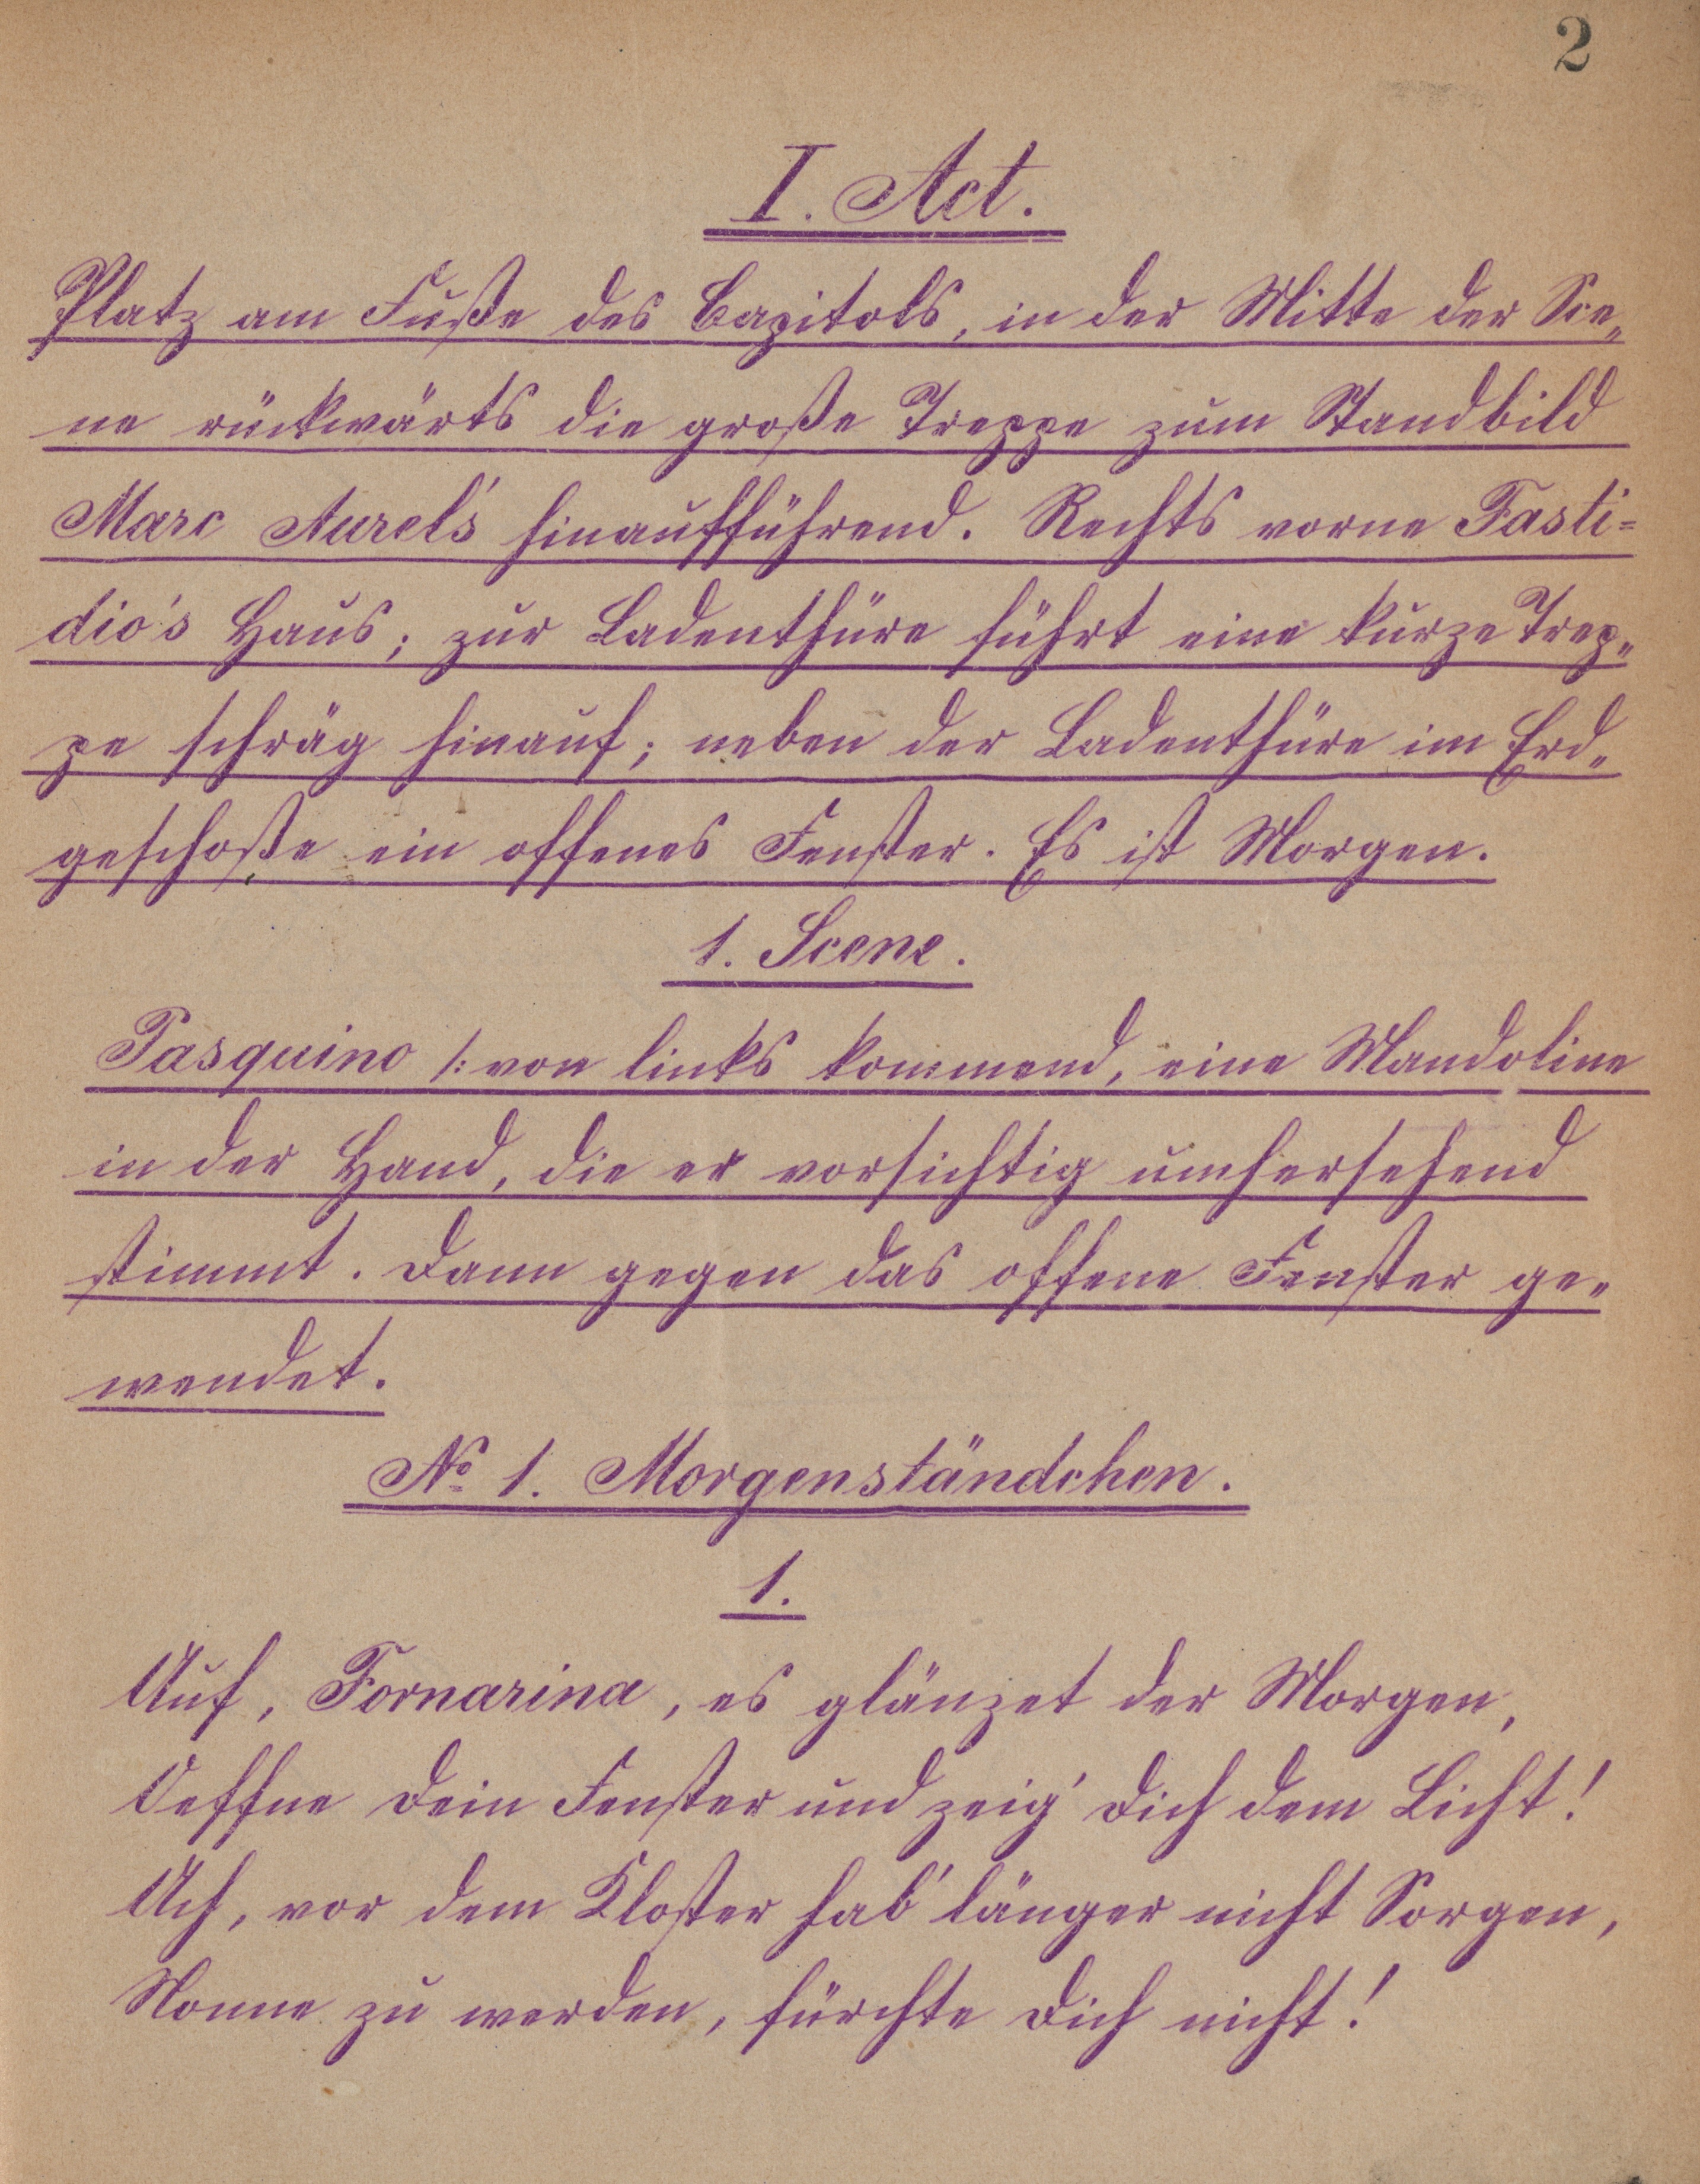 2
I. Act.
Platz am Fuße des Capitols, in der Mitte der Sce„
ne rückwärts die große Treppe zum Standbild
Marc Aurel's hinaufführend. Rechts vorne Fasti=
dio's Haus; zur Ladenthüre führt eine kurze Trep„
pe schräg hinauf; neben der Ladenthüre im Erd„
geschoße ein offenes Fenster. Es ist Morgen.
1. Scene.
Pasquino /: von links kommend, eine Mandoline
in der Hand, die er vorsichtig umhersehend
stimmt. Dann gegen das offene Fenster ge„
wendet.
No 1. Morgenständchen.
1.
Auf, Fornarina, es glänzet der Morgen,
Oeffne Dein Fenster und zeig' Dich dem Licht!
Ach, vor dem Kloster hab' länger nicht Sorgen,
Nonne zu werden, fürchte Dich nicht!